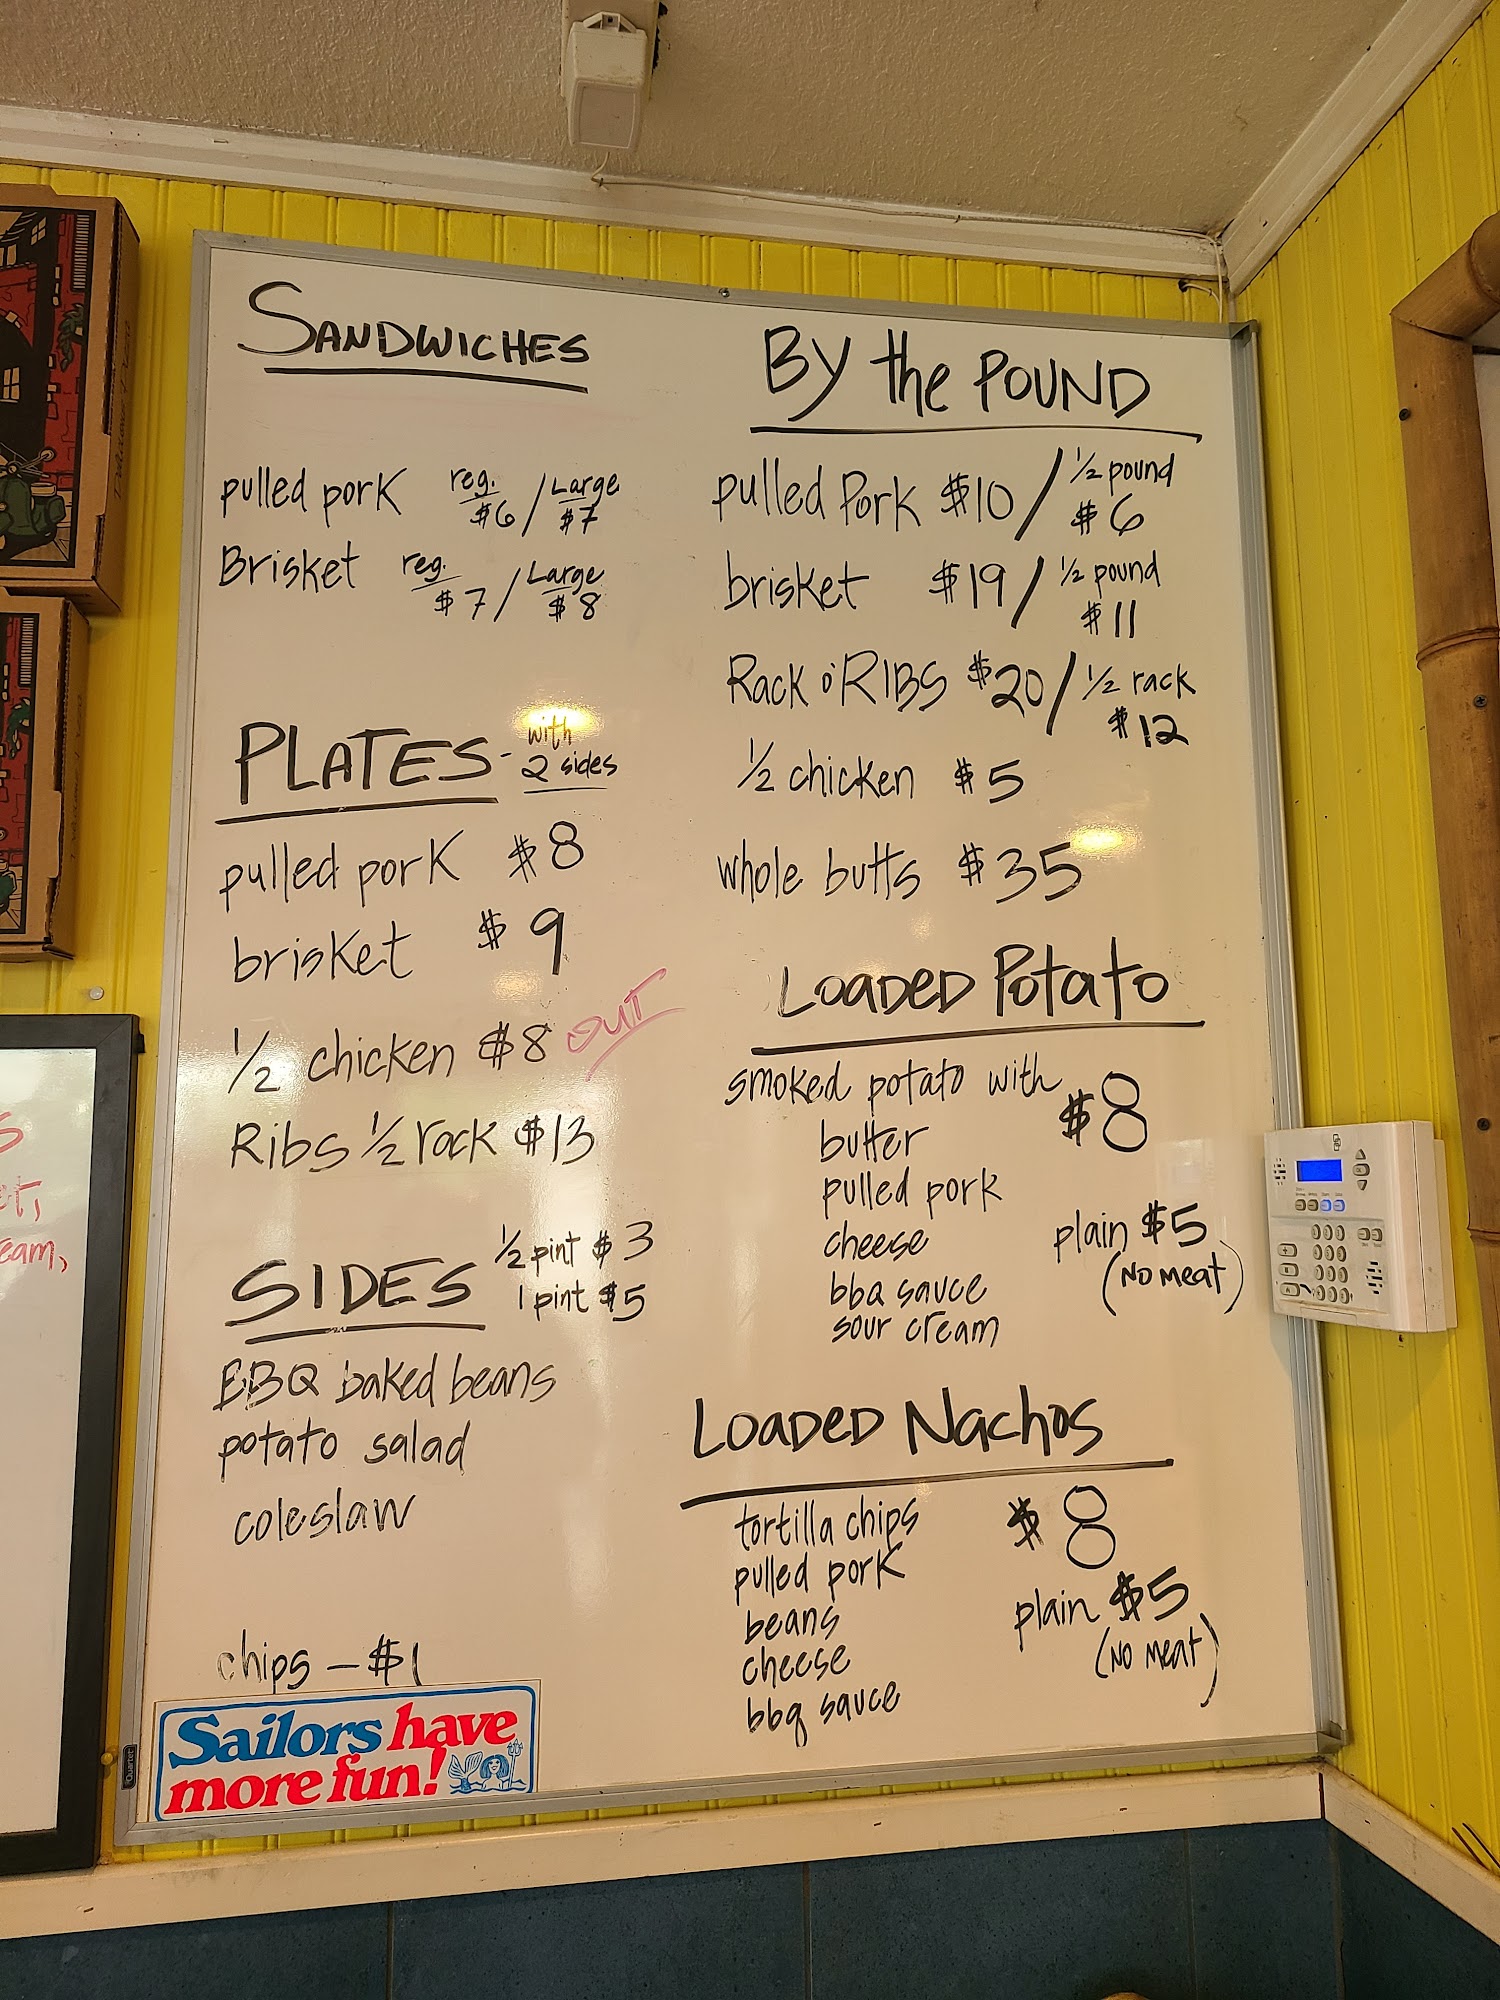 SANDWICHES
pulled pork reg. $6 / Large $7
Brisket reg. $7 / Large $8
PLATES - with 2 sides
pulled pork $8
brisket $9
1/2 chicken $8 OUT
Ribs 1/2 rack $13
SIDES 1/2 pint $3
1 pint $5
BBQ baked beans
potato salad
coleslaw
chips - $1
Sailors have
more fun!
BY the POUND
pulled Pork $10 / 1/2 pound $6
brisket $19 / 1/2 pound $11
Rack o' RIBS $20 / 1/2 rack $12
1/2 chicken $5
whole butts $35
LOADED Potato
smoked potato with $8
butter
pulled pork
cheese plain $5
bbq sauce (NO meat)
sour cream
LOADED Nachos
tortilla chips $8
pulled pork
beans plain $5
cheese (NO meat)
bbq sauce
Quartet